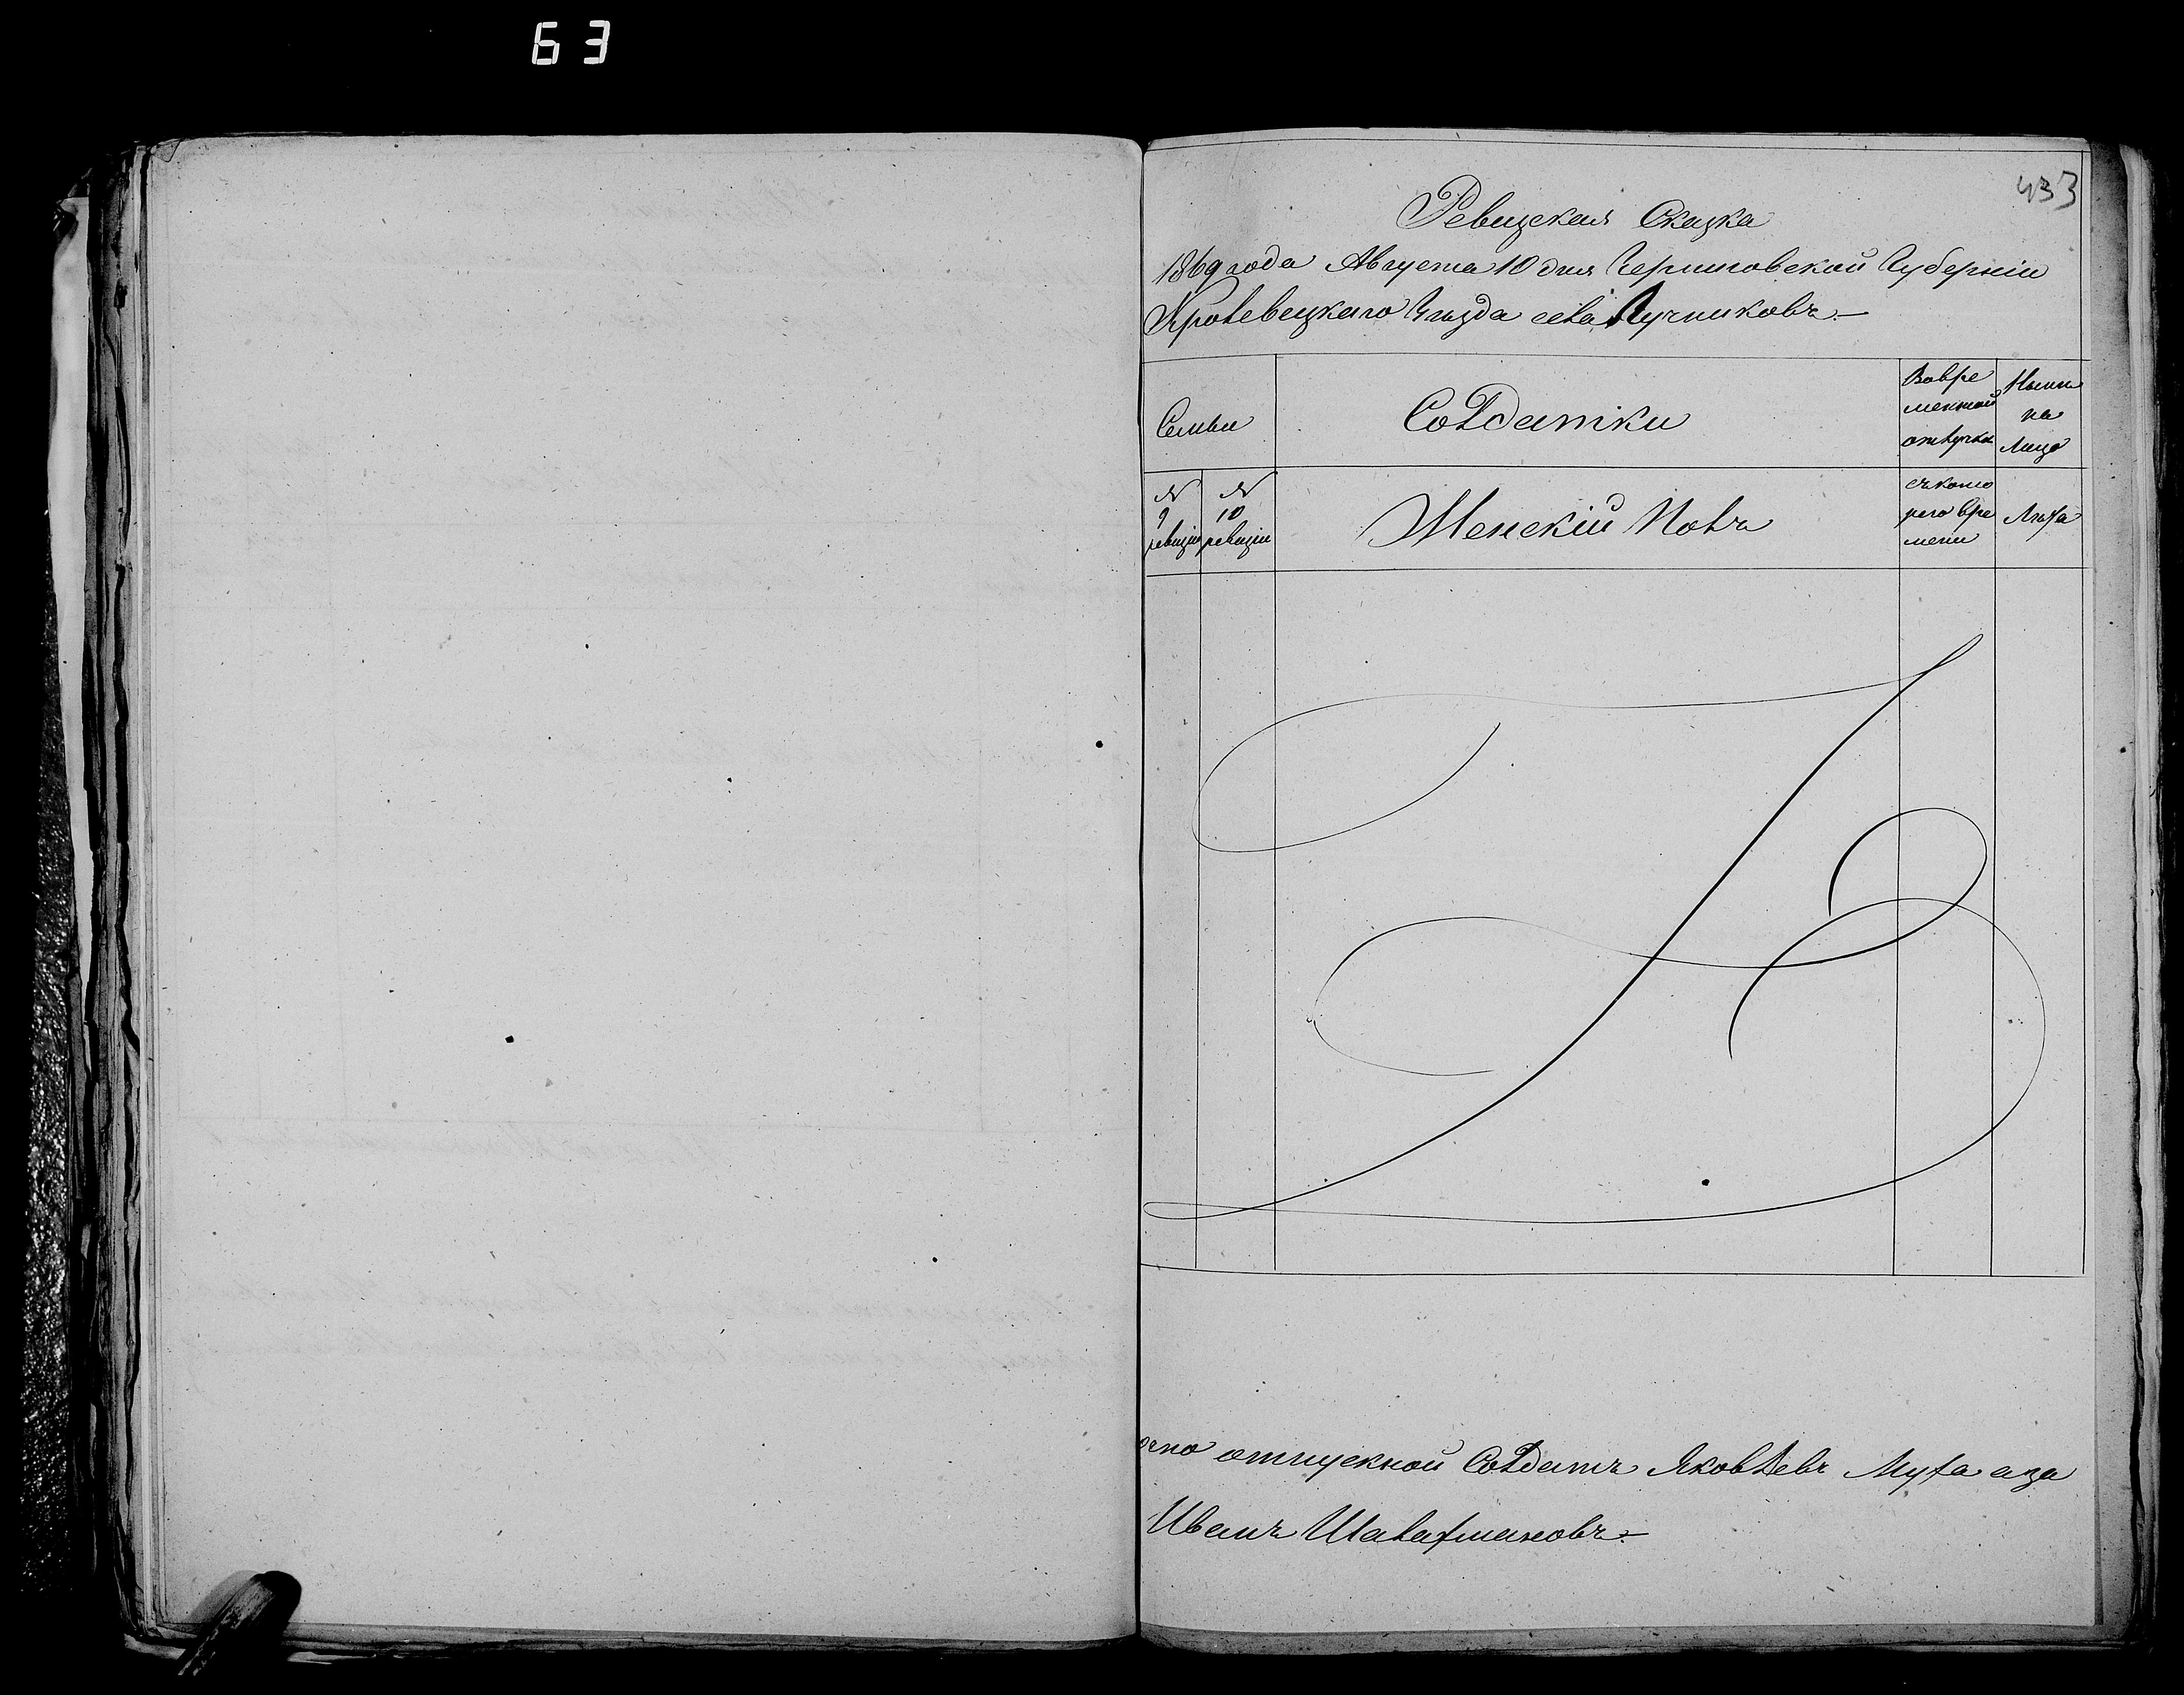 63
433
Ревизская Сказка
1869 года Августа 10 дня Черниговской Губерніи
Кролевецкаго Уѣзда села Лучниковъ.—
Семьи
Солдатки
Вовре
менной
отлучки
Нынѣ
на
Лицо
№
9
ревизіи
№
10
ревизіи
Женскій Полъ
съ кото
раго вре
мени
Лѣта
отпускной Солдатъ Яковлевъ Муха а за
Иванъ